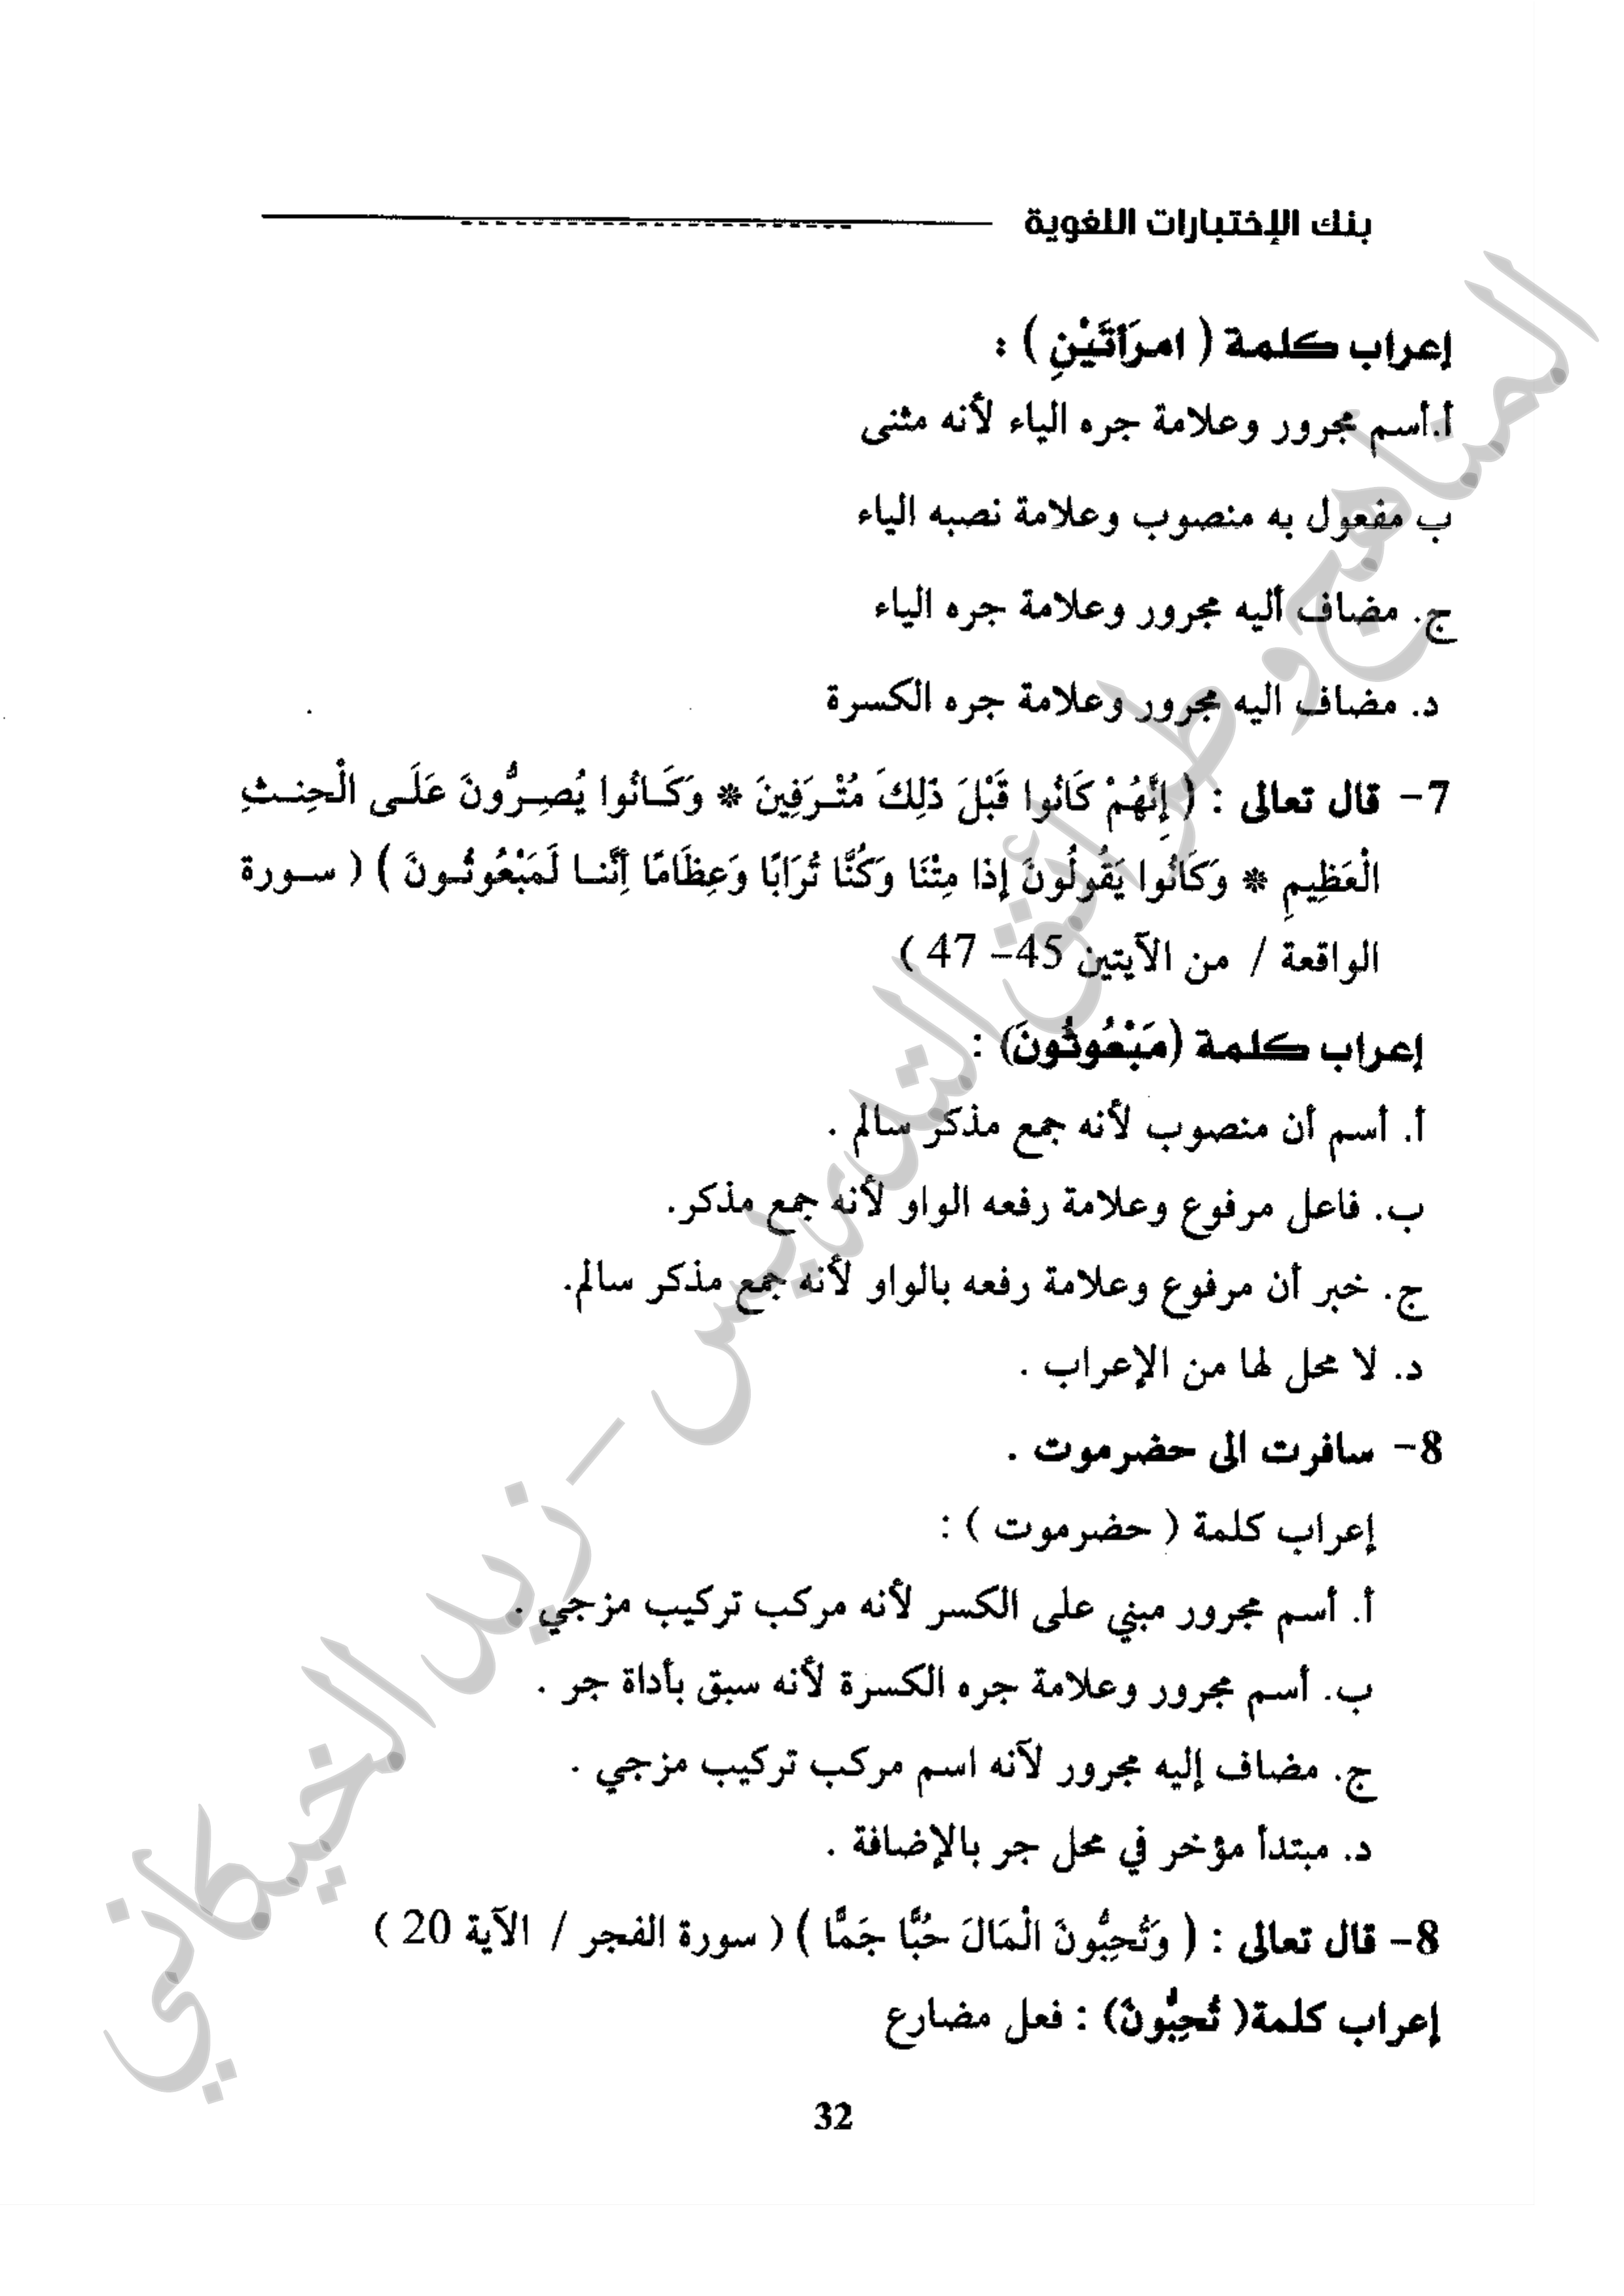 بنك الإختبارات اللغوية
إعراب كلمة ( امرَأتَيْنِ ) :
أ.أسم مجرور وعلامة جره الياء لأنه مثنى
ب مفعول به منصوب وعلامة نصبه الياء
ج. مضاف أليه مجرور وعلامة جره الياء
د. مضاف اليه مجرور وعلامة جره الكسرة
7- قال تعالى : ( إِنَّهُمْ كَانُوا قَبْلَ ذَلِكَ مُتْـرَفِينَ * وَكَـانُوا يُصِـرُّونَ عَلَـى الْحِنـثِ
الْعَظِيمِ * وَكَانُوا يَقُولُونَ إِذَا مِتْنَا وَكُنَّا تُرَابًا وَعِظَامًا أَإِنَّنـا لَمَبْعُوثُـونَ ) ( سـورة
الواقعة / من الآيتين 45– 47 )
إعراب كلمة (مَبْعُوثُونَ) :
أ. أسم أن منصوب لأنه جمع مذكر سالم .
ب. فاعل مرفوع وعلامة رفعه الواو لأنه جمع مذكر.
ج. خبر أن مرفوع وعلامة رفعه بالواو لأنه جمع مذكر سالم.
د. لا محل لها من الإعراب .
8- سافرت الى حضرموت .
إعراب كلمة ( حضرموت ) :
أ. أسم مجرور مبني على الكسر لأنه مركب تركيب مزجي .
ب. أسم مجرور وعلامة جره الكسرة لأنه سبق بأداة جر .
ج. مضاف إليه مجرور لآنه اسم مركب تركيب مزجي .
د. مبتدأ مؤخر في محل جر بالإضافة .
8– قال تعالى : ( وَتُحِبُّونَ الْمَالَ حُبًّا جَمًّا ) ( سورة الفجر / الآية 20 )
إعراب كلمة( تُحِبُّونَ) : فعل مضارع
32
المناهج وطرائق التدريس – زيد الخيكاني